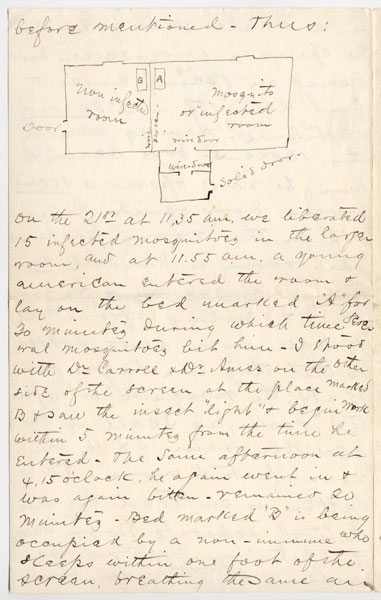 before mentioned - Thus:
B
A
Non infected
room
Mosquito
or infected
room
Door
wire
window
window
Solid Door.
On the 21st at 11.35 am. we liberated
15 infected mosquitoes in the larger
room, and at 11.55 am. a young
american entered the room &
lay on the bed marked "A" for
30 minutes during which time Seve-
ral mosquitoes bit him - I stood
with Dr Carroll & Dr Ames on the other
side of the screen at the place marked
B & saw the insect "light" & begin work
within 5 minutes from the time he
entered - The same afternoon at
4.15 oclock, he again went in &
was again bitten - remained 20
minutes - Bed marked "B" is being
occupied by a non-immune who
sleeps within one foot of the
screen, breathing the same air